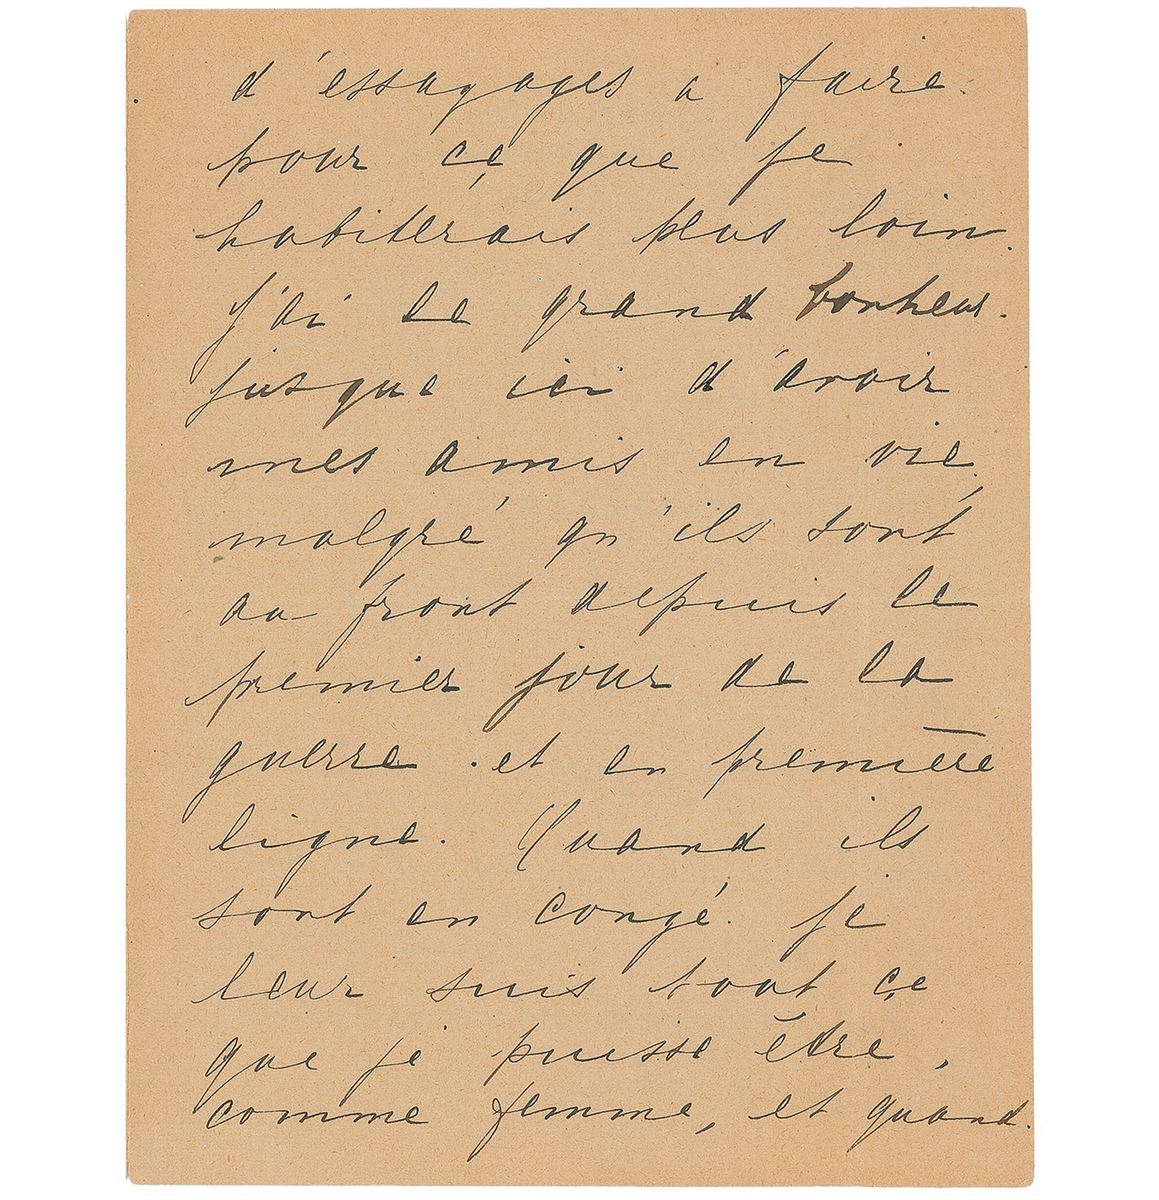 d'essayages a faire.
pour çe que je
habiterais plus loin.
j'ai le grand bonheur.
jusque ici d'avoir
mes amis en vie,
malgré qu'ils sont
au front depuis le
premier jour de la
guerre. et en première
ligne. Quand ils
sont en congé. je
leur suis tout çe
que je puisse être,
comme femme, et quand.